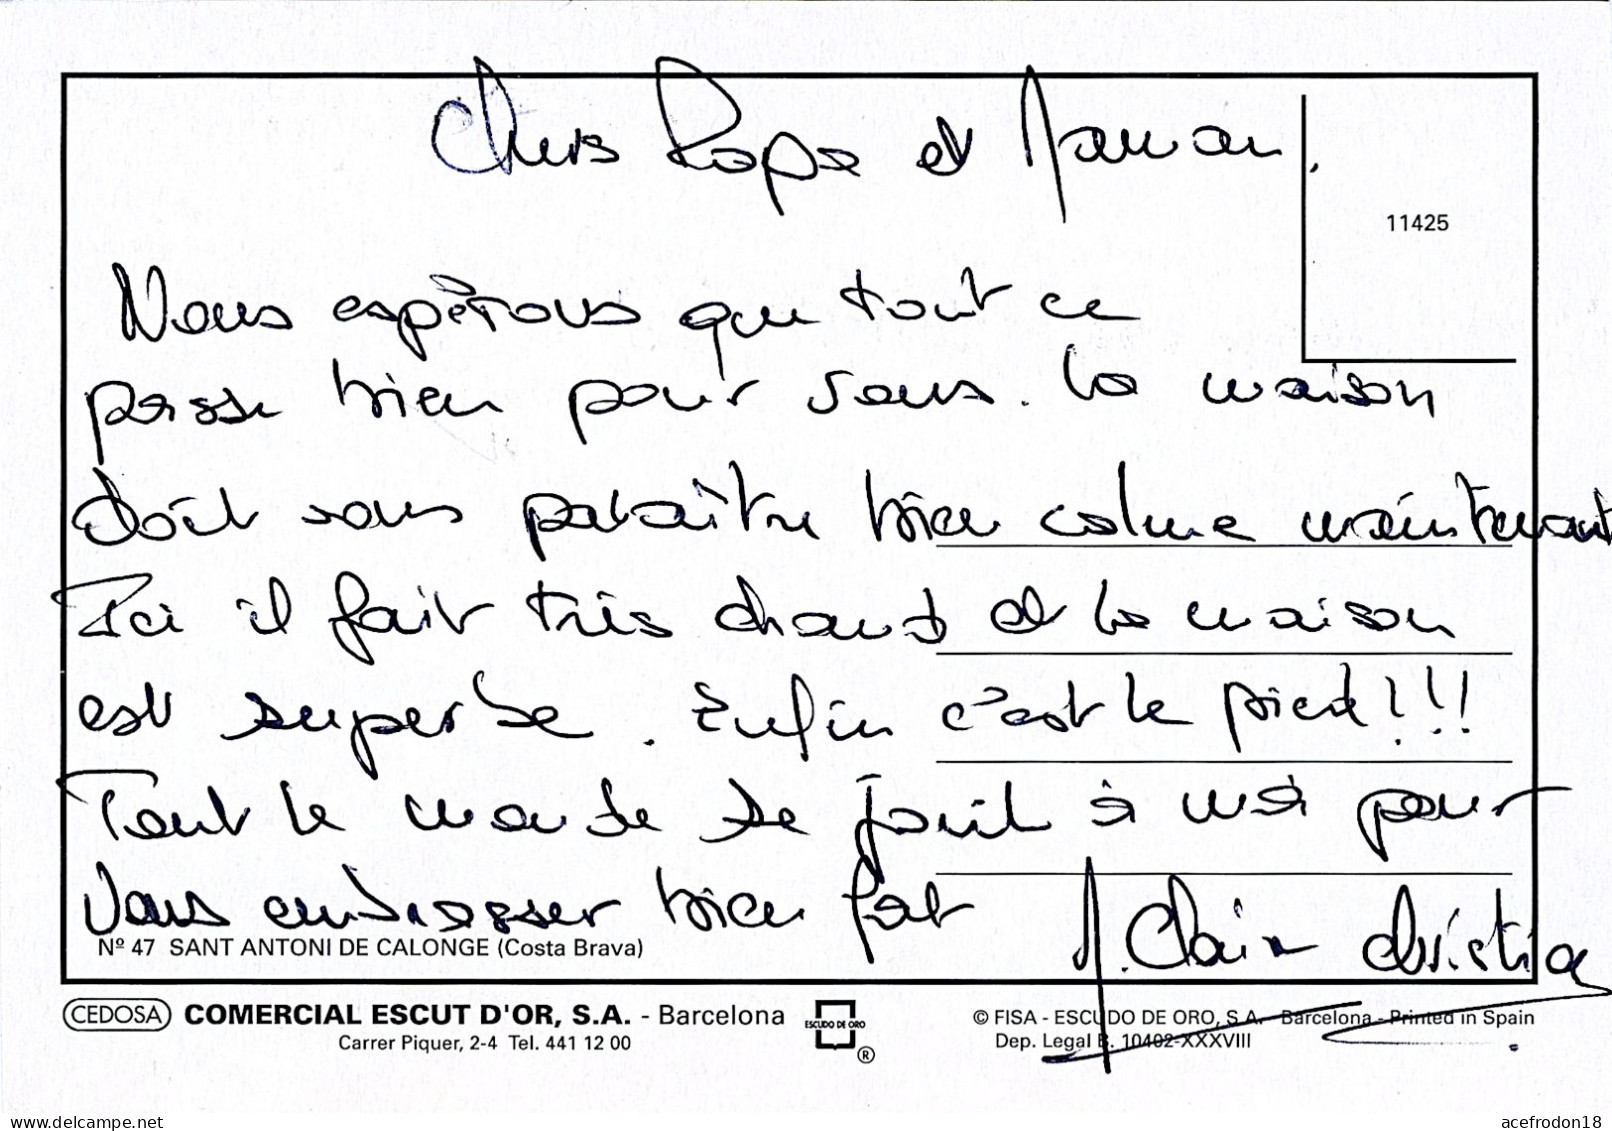 Chers Papa et Maman,
11425
Nous espérons que tout ce
passe bien pour vous. La maison
doit vous paraître bien calme maintenant
Ici il fait très chaud et la maison
est superbe. Enfin c'est le pied!!!
Tout le monde se joint à moi pour
Vous embrasser bien fort
M. Claire Christian
Nº 47 SANT ANTONI DE CALONGE (Costa Brava)
CEDOSA COMERCIAL ESCUT D'OR, S.A. - Barcelona
Carrer Piquer, 2-4 Tel. 441 12 00
ESCUDO DE ORO
®
© FISA - ESCUDO DE ORO, S.A. Barcelona - Printed in Spain
Dep. Legal B. 10402-XXXVIII
delcampe.net
acefrodon18